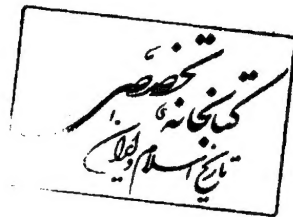 کتابخانهٔ تخصصی
تاریخ اسلام و ایران